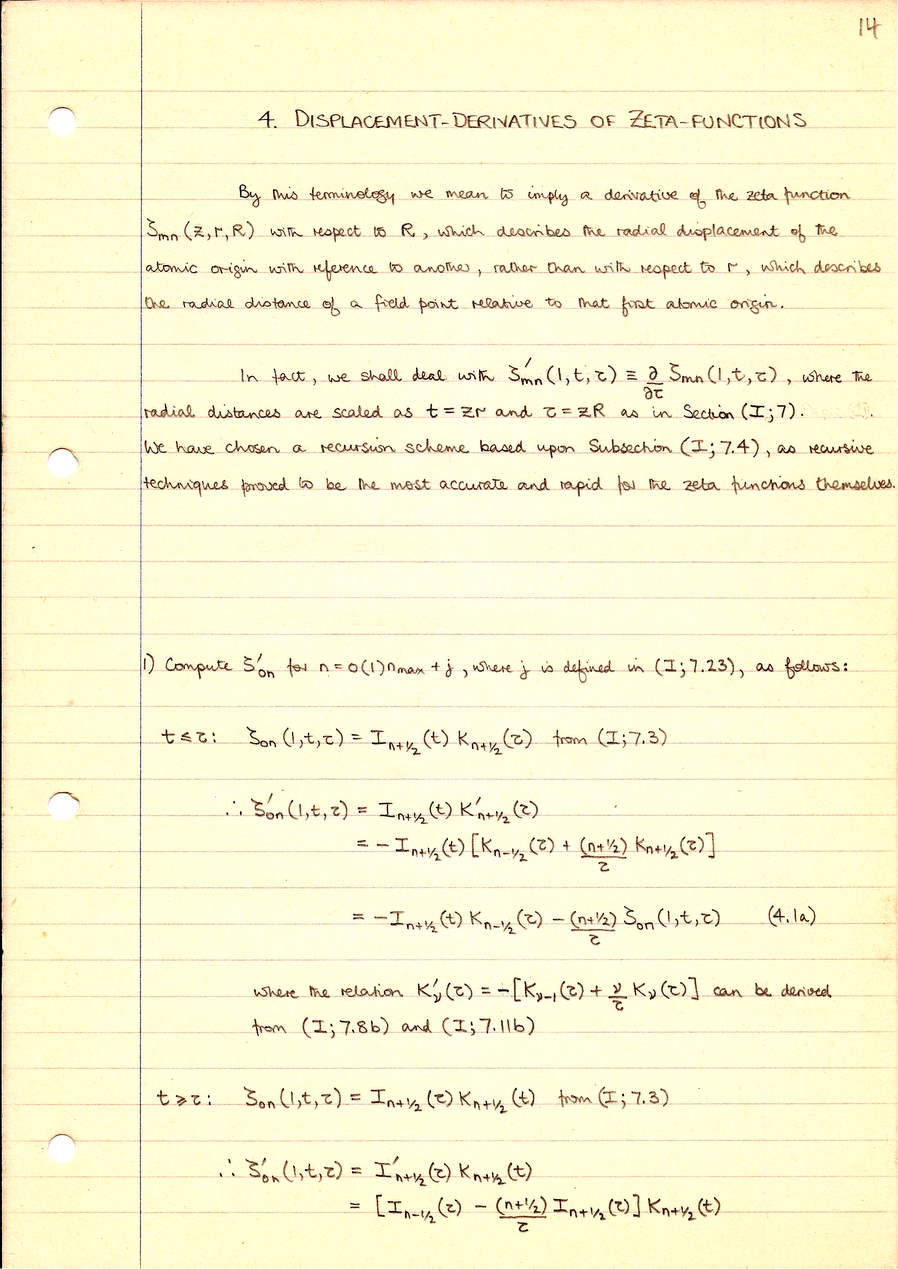 14
4. DISPLACEMENT-DERIVATIVES OF ZETA-FUNCTIONS
By this terminology we mean to imply a derivative of the zeta function
ζmn(z,r,R) with respect to R, which describes the radial displacement of the
atomic origin with reference to another, rather than with respect to r, which describes
the radial distance of a field point relative to that first atomic origin.
In fact, we shall deal with ζ′mn(1,t,τ) ≡ ∂/∂τ ζmn(1,t,τ), where the
radial distances are scaled as t = zr and τ = zR as in Section (I;7).
We have chosen a recursion scheme based upon Subsection (I;7.4), as recursive
techniques proved to be the most accurate and rapid for the zeta functions themselves.
1) Compute ζ′on for n = 0(1)nmax + j, where j is defined in (I;7.23), as follows:
t ≤ τ: ζon(1,t,τ) = In+½(t) Kn+½(τ) from (I;7.3)
∴ ζ′on(1,t,τ) = In+½(t) K′n+½(τ)
= - In+½(t) [Kn-½(τ) + (n+½)/τ Kn+½(τ)]
= -In+½(t) Kn-½(τ) - (n+½)/τ ζon(1,t,τ) (4.1a)
where the relation K′ν(τ) = -[Kν-1(τ) + ν/τ Kν(τ)] can be derived
from (I;7.8b) and (I;7.11b)
t ≥ τ: ζon(1,t,τ) = In+½(τ) Kn+½(t) from (I;7.3)
∴ ζ′on(1,t,τ) = I′n+½(τ) Kn+½(t)
= [In-½(τ) - (n+½)/τ In+½(τ)] Kn+½(t)